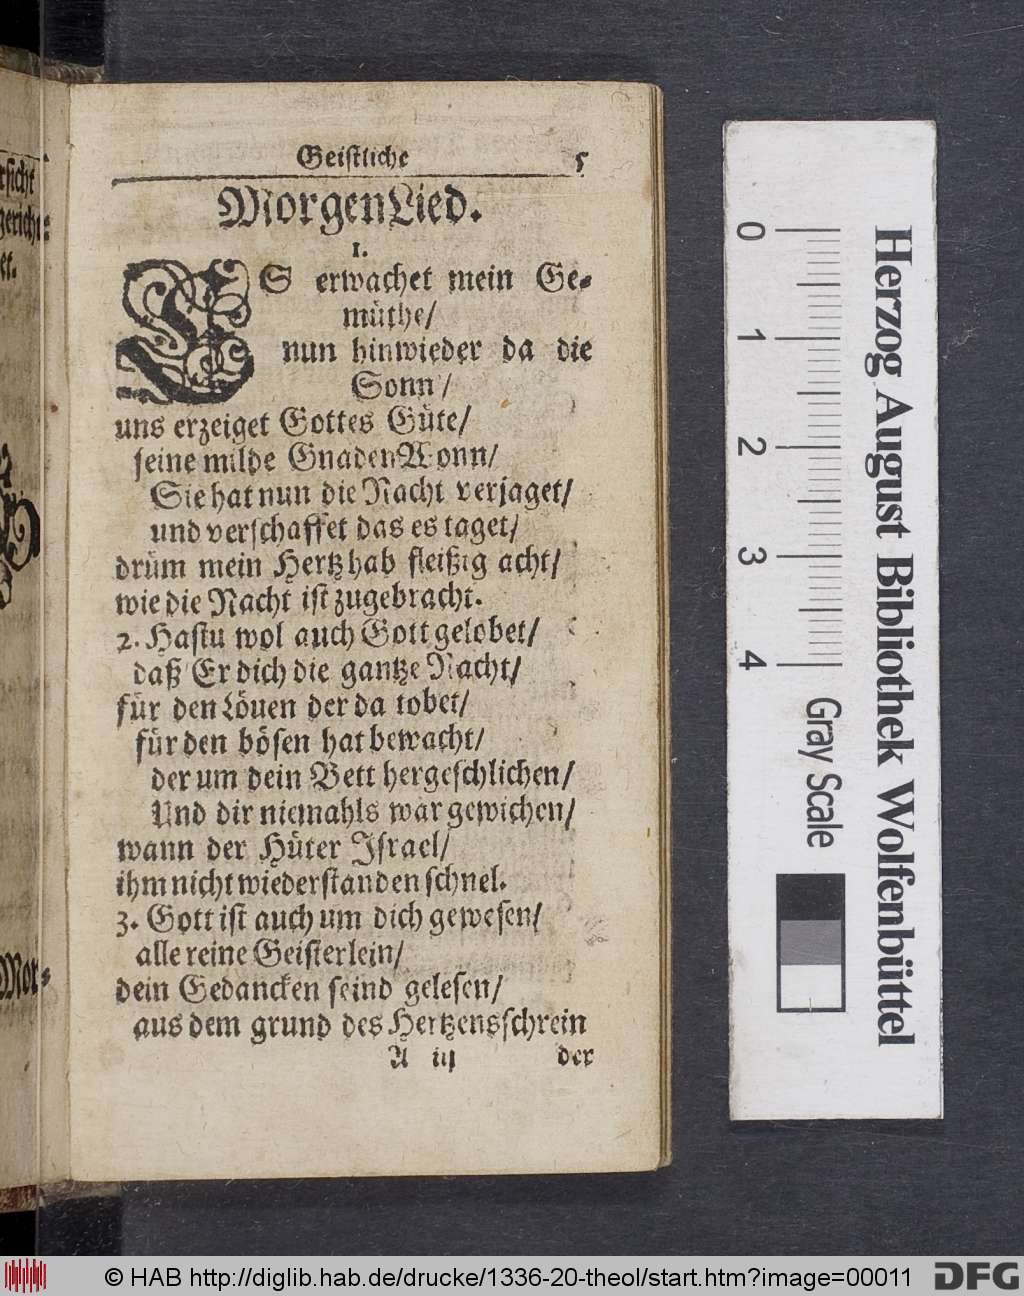 Geistliche 5
MorgenLied.
1.
ES erwachet mein Ge-
müthe/
nun hinwieder da die
Sonn/
uns erzeiget Gottes Güte/
seine milde GnadenWonn/
Sie hat nun die Nacht verjaget/
und verschaffet das es taget/
drüm mein Hertz hab fleißig acht/
wie die Nacht ist zugebracht.
2. Hastu wol auch Gott gelobet/
daß Er dich die gantze Nacht/
für den Löuen der da tobet/
für den bösen hat bewacht/
der um dein Bett hergeschlichen/
Und dir niemahls war gewichen/
wann der Hüter Israel/
ihm nicht wiederstanden schnel.
3. Gott ist auch um dich gewesen/
alle reine Geisterlein/
dein Gedancken seind gelesen/
aus dem grund des Hertzensschrein
A iij der
rsicht
gericht-
et.
Mor-
0 1 2 3 4
Gray Scale
Herzog August Bibliothek Wolfenbüttel
© HAB http://diglib.hab.de/drucke/1336-20-theol/start.htm?image=00011
DFG